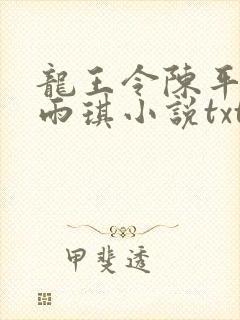 龍王令陳平
雨琪小説txt
甲斐透